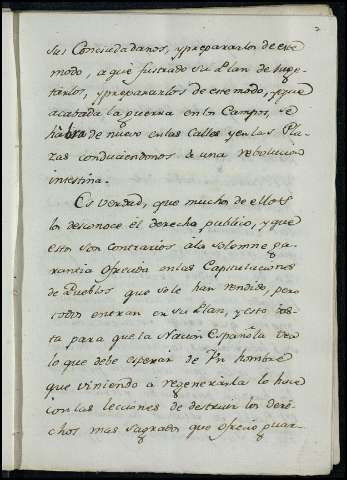 2
sus Conciudadanos, y prepararlos de este
modo, a que fustrado su Plan de suge-
tarlos, y prepararlos de este modo, y que
acabada la guerra en los Campos, se
habra de nuevo en las Calles y en las Pla-
zas conduciendonos à una rebolucion
intestina.
Es verdad, que mucho de ello
lo desconoce el derecho publico, y que
esto son contrarios a la solemne ga-
rantia ofrecida en las Capitulaciones
de Pueblos que se le han rendido, pero
todos entran en su Plan, y esto bas-
ta para que la Nacion Española vea
lo que debe esperar de Un hombre
que viniendo a regenerarla lo hace
con las lecciones de destruir los dere-
chos mas sagrados que ofrecio guar-